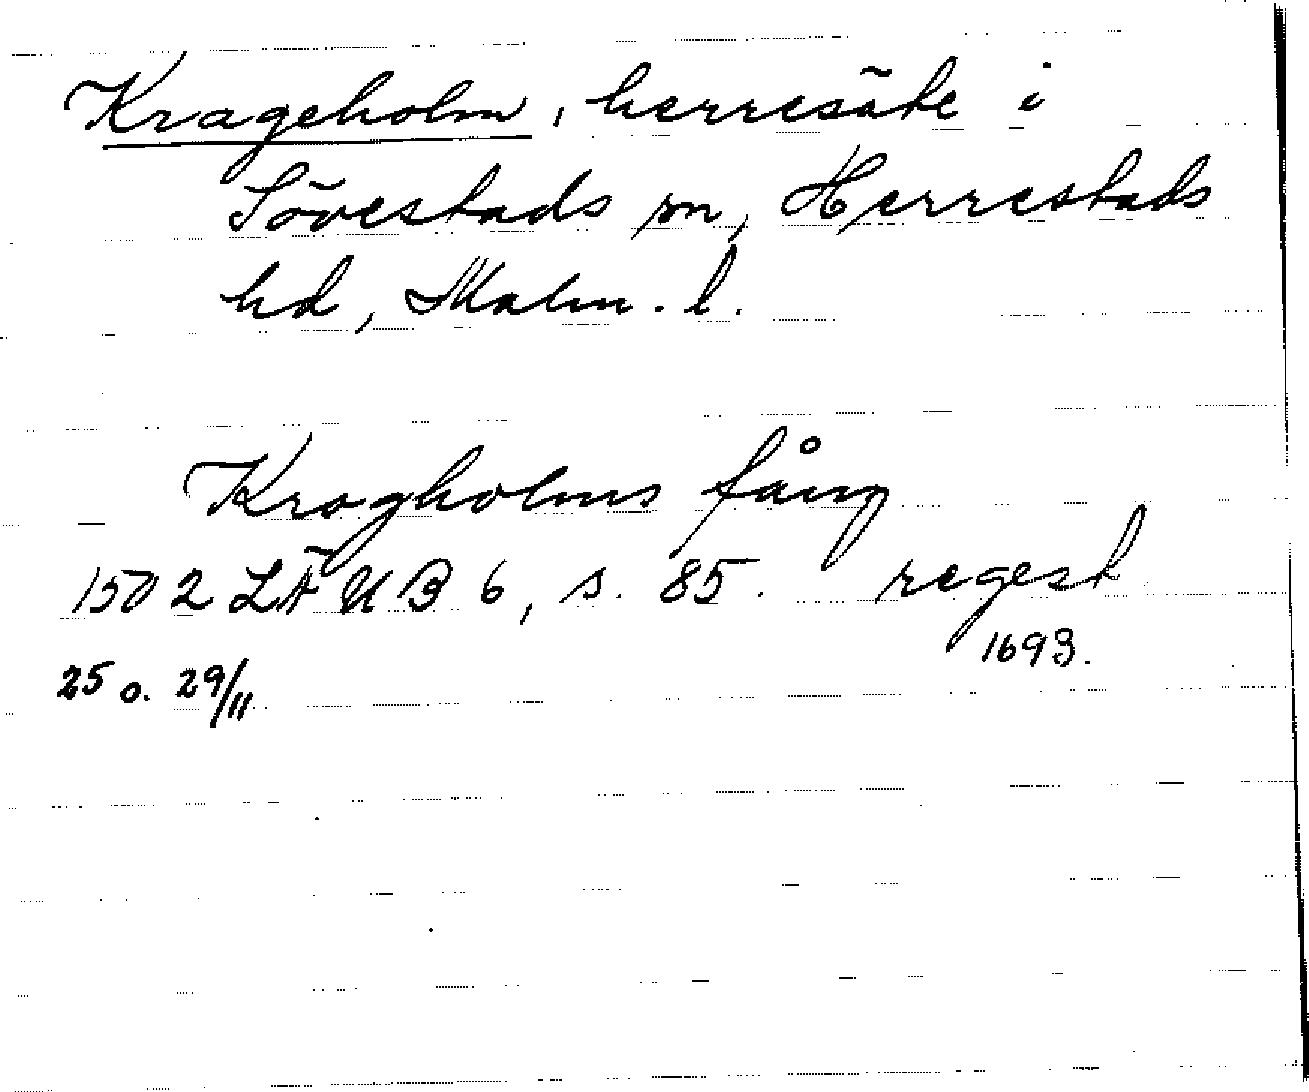 Krageholm, herresäte i
Sövestads sn, Herrestads
hd, Malm. l.
Krogholms fång
1502 LÄUB 6, s. 85. regest
1693.
25 o. 29/11